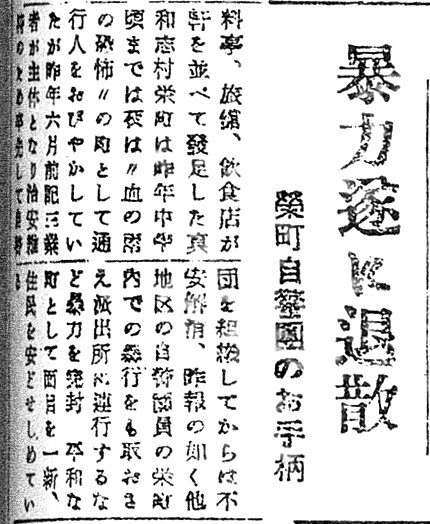 暴力遂に退散
榮町自警團のお手柄
料亭、旅舘、飲食店が
軒を並べて發足した真
和志村栄町は昨年中半
頃までは夜は〃血の雨
の恐怖〃の町として通
行人をおびやかしてい
たが昨年六月前記三業
者が主体となり治安維
のため率先して自警
団を組織してからは不
安解消、昨報の如く他
地区の自警団員の栄町
内での暴行をも取おさ
え派出所に連行するな
ど暴力を完封 平和な
町として面目を一新、
住民を安どせしめてい
る